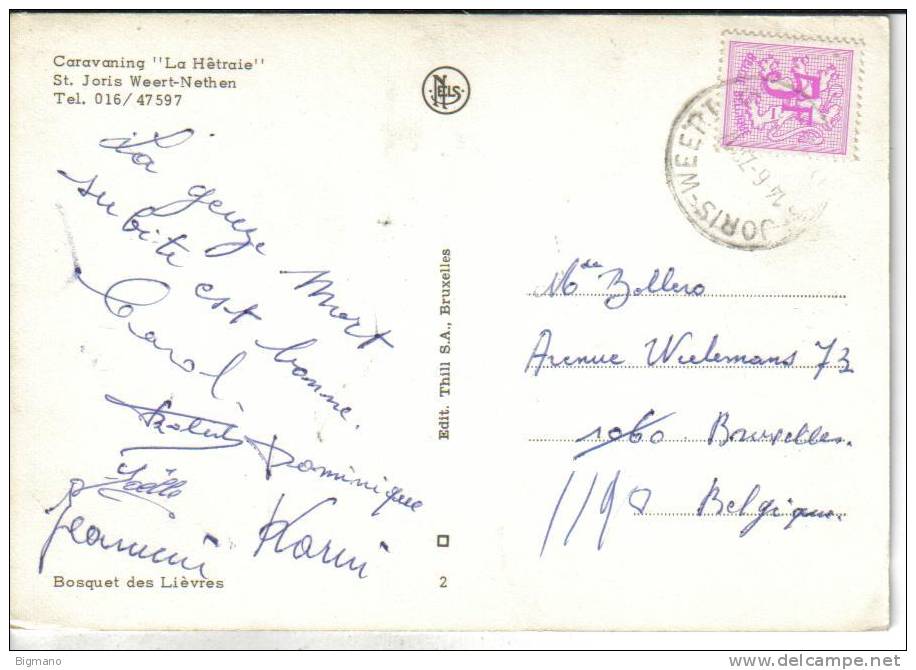 Caravaning "La Hêtraie"
St. Joris Weert-Nethen
Tel. 016/47597
NELS
5F
JORIS-WEERT
14-6-7
La geuze Mort
subite est bonne.
Carol
Dominique
Joëlle
Karin
Bosquet des Lièvres
Edit. Thill S.A., Bruxelles
2
Mde Bollero
Avenue Wielemans 73
1060 Bruxelles.
1190 Belgique.
Bigmano
delcampe.net